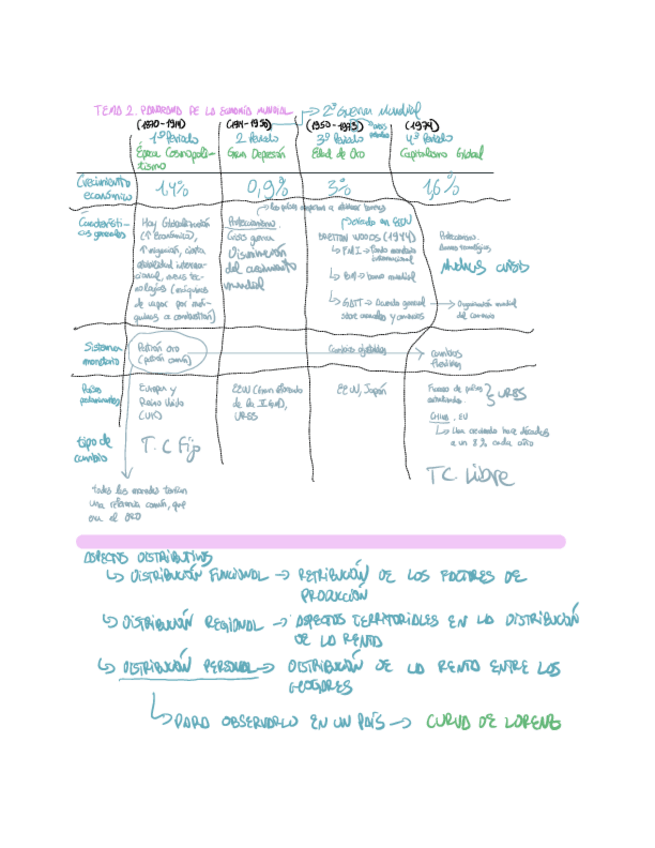 TEMA 2. PANORAMA DE LA ECONOMÍA MUNDIAL → 2ª Guerra Mundial
(1870-1914) (1914-1950) (1950-1973) (1974)
1º Periodo 2 Periodo 3º Periodo 4º Periodo
Época Cosmopoli- Gran Depresión Edad de Oro Capitalismo Global
tismo
Crecimiento
económico
1,4% 0,9% 3% 1,6%
Característi-
cas generales
Hay Globalización
(↑ Económica),
↑ migración, cierta
estabilidad interna-
cional, nuevas tec-
nologías (máquinas
de vapor por máq-
quinas a combustión)
Proteccionismo.
Crisis, guerra
Disminución
del crecimiento
mundial
BRETTON WOODS (1944)
↳ FMI → Fondo monetario
internacional
↳ BM → banco mundial
↳ GATT → Acuerdo general
sobre aranceles y comercio
→ Organización mundial
del comercio
Proteccionismo.
Muchas CRISIS
Sistema
monetario
Patrón oro
(patrón común)
Cambios ajustables → cambios
flexibles
Países
predominantes
Europa y
Reino Unido
(UK)
EEUU (Gran
de la II GM),
URSS
EEUU, Japón
Fracaso de países } URSS
China, EU
↳ Van creciendo hace décadas
a un 8% cada año
tipo de
cambio
T.C Fijo
TC. Libre
todas las monedas tenían
una referencia común, que
era el ORO
ASPECTOS DISTRIBUTIVOS
↳ DISTRIBUCIÓN FUNCIONAL → RETRIBUCIÓN DE LOS FACTORES DE
PRODUCCIÓN
↳ DISTRIBUCIÓN REGIONAL → ASPECTOS TERRITORIALES EN LA DISTRIBUCIÓN
DE LA RENTA
↳ DISTRIBUCIÓN PERSONAL → DISTRIBUCIÓN DE LA RENTA ENTRE LOS
HOGARES
↳ PARA OBSERVARLO EN UN PAÍS → CURVA DE LORENZ